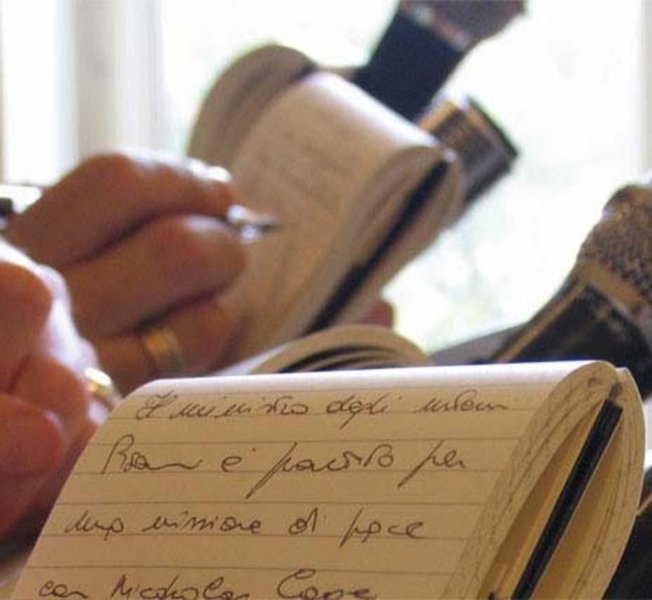 Il ministro degli
è partito per
una missione di pace
con Nicholas Cage